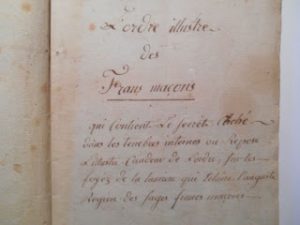 L'ordre illustre
des
Frans maçons
qui Contient Le Secrèt Caché
dans les tenebres internes ou Repose
L'illustre Candeur de l'ordre, sur les
de la lumiere qui Eclaire L'auguste
des Sages francs maçons